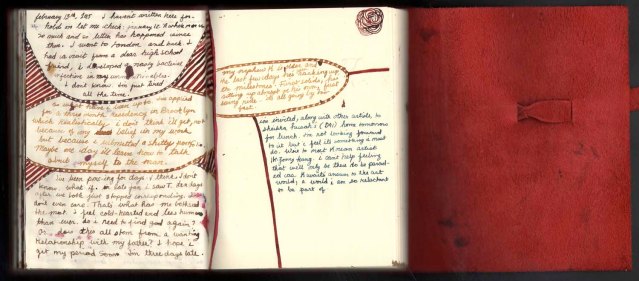 february 13th, 2015 I haven't written here for...
hold on let me check: january
so much and so little has happened since
then. I went to London and back. I
had a visit from a dear high school
friend, I developed a nasty bacterial
infection in my
I don't know. I'm just tired
all the time.
what have I been up to. I've applied
for a three month residency in Brooklyn
which realistically I don't think I'll get, not
because of any belief in my work
but because I submitted a shitty
Maybe one day I'll learn how to talk
about myself to the man.
I've been pacing for days I think. I don't
know what if so late
after we both just stopped corresponding. I
don't even care. That's what has me bothered
the most. I feel cold-hearted and less human
than ever. Do I need to find god again?
Or does this all stem from a wanting
relationship with my father? I hope I
get my period soon I'm three days late.
my nephew is golden and
the last few days he's racking up
the milestones. First solids, first
sitting upright on his own, first
swing ride. It's all going by so
fast.
I'm invited, along with other artists, to
sheikha home tomorrow
for lunch. I'm not looking forward
to it but I feel it's something I must
do. Who to meet: Korean artist
I can't help feeling
that will only be there to be parad-
ed as a Kuwaiti answer to the art
world; a world I am so reluctant
to be part of.